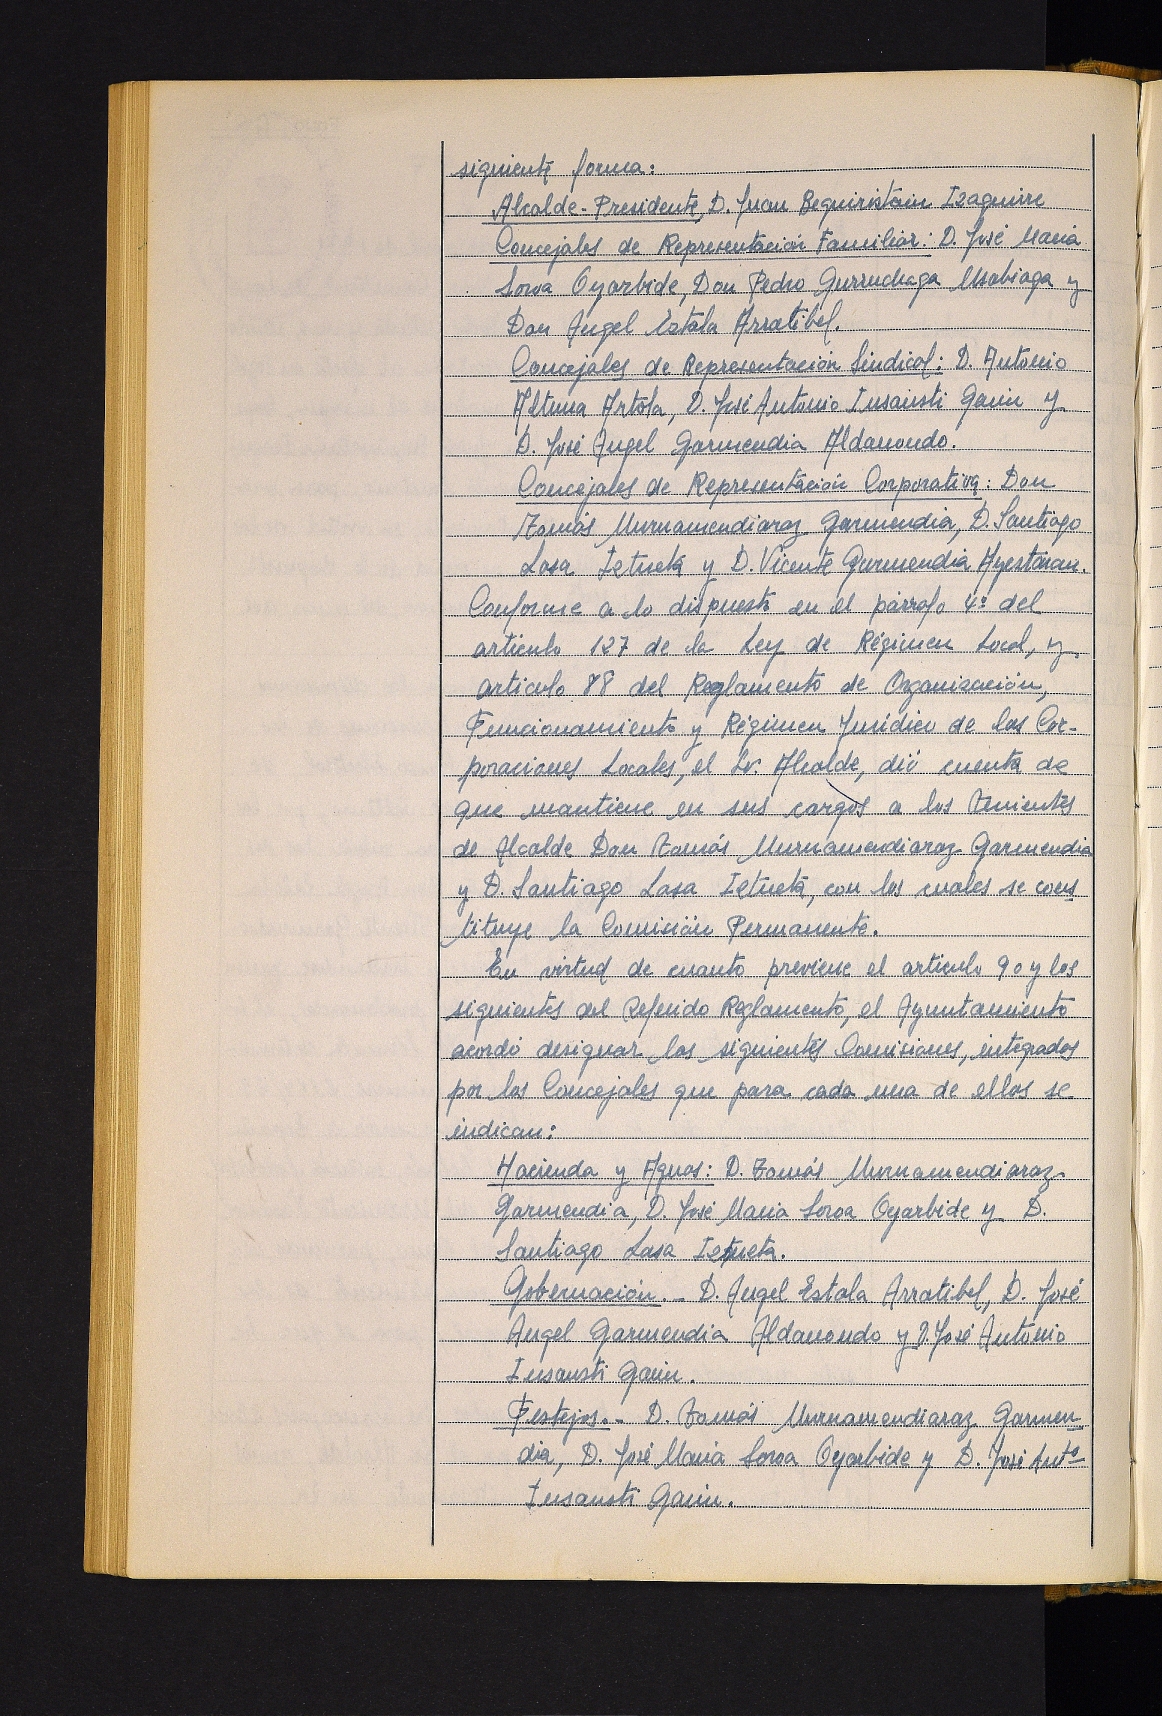 siguiente forma:
Alcalde-Presidente, D. Juan Beguiristain Izaguirre
Concejales de Representación Familiar: D. José Maria
Soroa Oyarbide, Don Pedro Gurruchaga Usabiaga y
Don Angel Estala Arratibel.
Concejales de Representación Sindical: D. Antonio
Altuna Artola, D. José Antonio Insausti Garin y
D. José Angel Garmendia Aldanondo.
Concejales de Representación Corporativa: Don
Tomás Murnamendiaraz Garmendia, D. Santiago
Lasa Iztueta y D. Vicente Garmendia Ayestaran.
Conforme a lo dispuesto en el párrafo 4º del
articulo 127 de la Ley de Régimen Local, y
articulo 78 del Reglamento de Organización,
Funcionamiento y Régimen Juridico de las Cor-
poraciones Locales, el Sr. Alcalde, dió cuenta de
que mantiene en sus cargos a los Tenientes
de Alcalde Don Tomás Murnamendiaraz Garmendia
y D. Santiago Lasa Iztueta, con los cuales se cons
tituye la Comisión Permanente.
En virtud de cuanto previene el articulo 90 y los
siguientes del Referido Reglamento, el Ayuntamiento
acordó designar las siguientes Comisiones, integradas
por los Concejales que para cada una de ellas se
indican:
Hacienda y Aguas: D. Tomás Murnamendiaraz
Garmendia, D. José Maria Soroa Oyarbide y D.
Santiago Lasa Iztueta.
Gobernación.- D. Angel Estala Arratibel, D. José
Angel Garmendia Aldanondo y D. José Antonio
Insausti Garin.
Festejos.- D. Tomás Murnamendiaraz Garmen
dia, D. José Maria Soroa Oyarbide y D. José Antº
Insausti Garin.